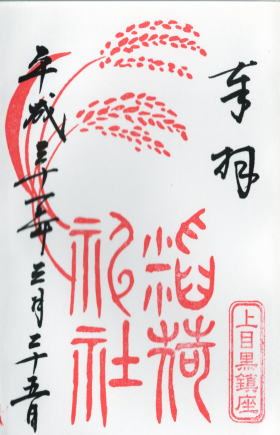 奉拝
稲荷
神社
上目黒鎮座
平成三十一年三月二十五日